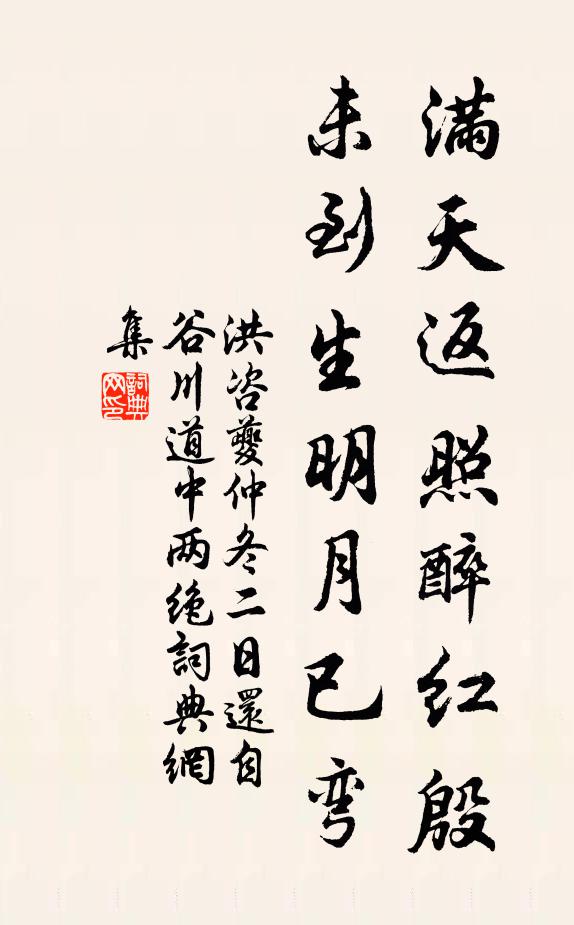 満天返照醉红殷
未到生明月已弯
洪咨夔仲冬二日還自
谷川道中两绝詞典網
集
詞典
网印